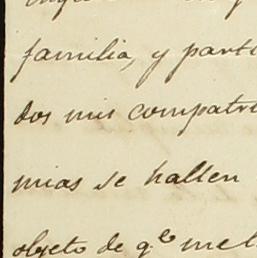 familia, y parti
dos mis compatri
mias se hallen
objeto de q.e me l